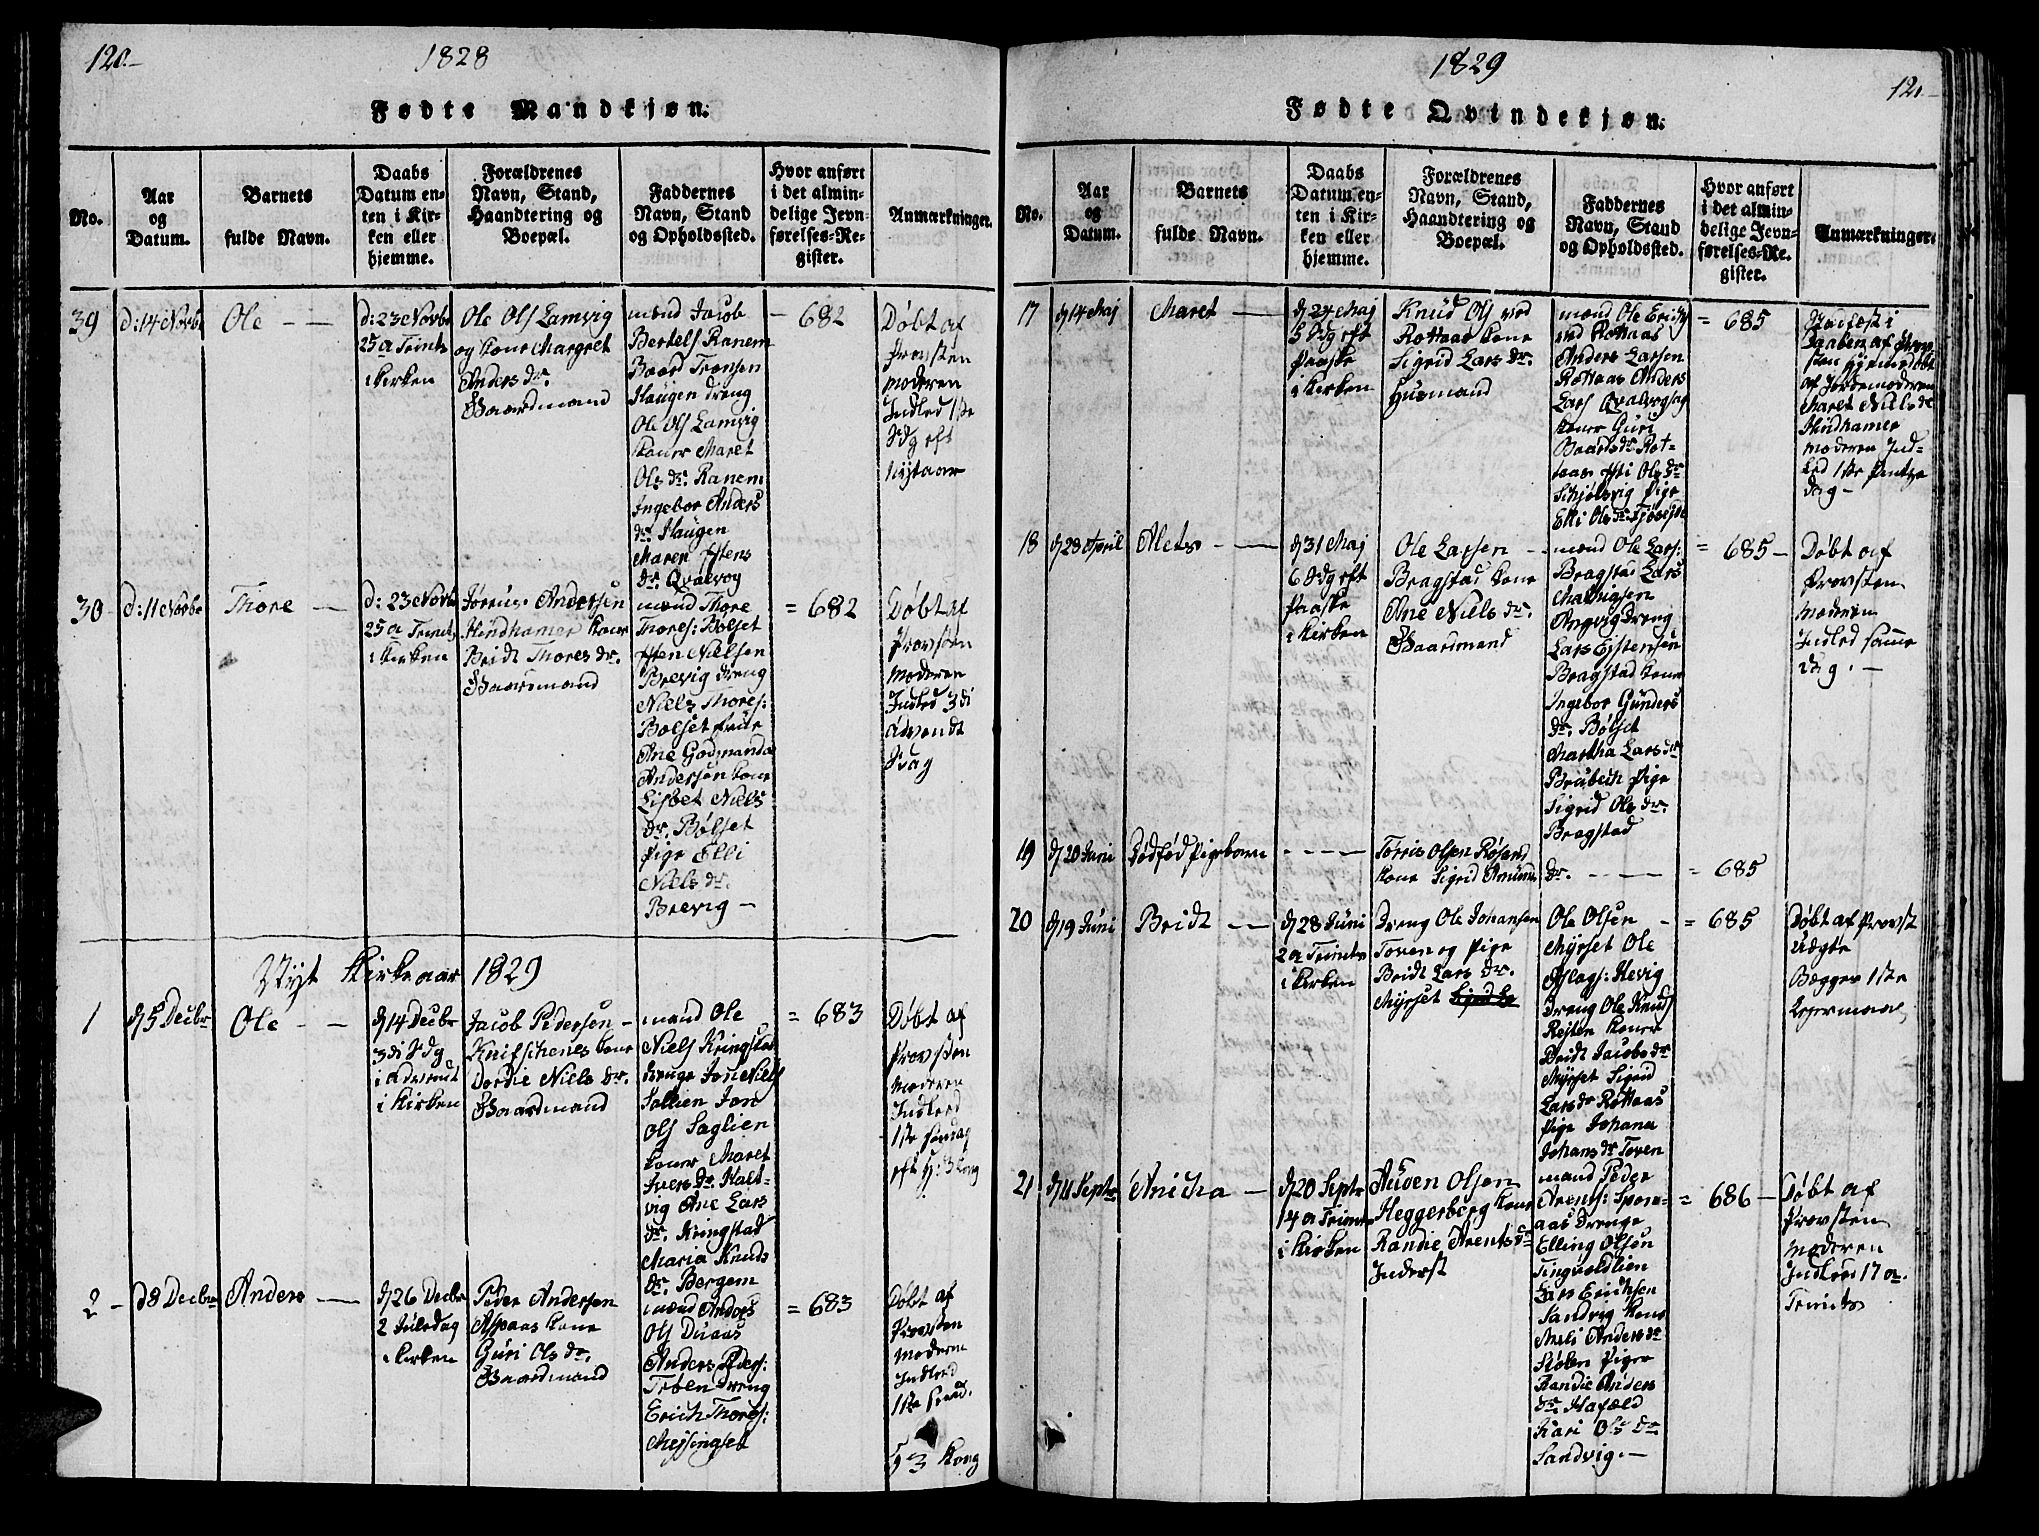 120.-
1828
Fødte Mandkjøn.
No.
Aar
og
Datum.
Barnets
fulde Navn.
Daabs
Datum en-
ten i Kir-
ken eller
hjemme.
Forældrenes
Navn, Stand,
Haandtering og
Boepæl.
Faddernes
Navn, Stand
og Opholdssted.
Hvor anført
i det almin-
delige Jevn-
førelses-Re-
gister.
Anmærkninger.
39
d: 14 Novbr
Ole - -
d: 23 Novbr
25 a Trinit
i Kirken
Ole Ols Lamvig
og kone Margret
Anders dr.
Gaardmand
mænd Jacob
Bertels Ranem
Baar Tronsen
Haugen dreng
Ole Ols Lamvig
koner Maret
Ols dr. Ranem
Ingebor Anders
dr. Haugen
Maren Estens
dr. Qvalvog
- 682
Døbt af
Provsten
Moderen
Indled 1ste
Sdg eft
Nytaar
30
d: 11 Novbr
Thore -
d: 23 Novbr
25 a Trinit
i Kirken
Andersen
Hindhamer kone
Bridt Thores dr.
Gaardmand
mænd Thore
Thores: Bølset
Esten Nielsen
Brevig dreng
Niels Thores:
Bølset
Ane Godmanda
Andersen kone
Lisbet Niels
dr. Bølset
Pige Elli
Niels dr.
Brevig -
= 682
Døbt af
Provsten
Moderen
Indled 3di
Advendt
Sdag
Nyt Kirkeaar 1829
1
d 5 Decbr
Ole - -
d 14 Decbr
3di Sdg
i Advendt
i Kirken
Jacob Pedersen -
kone
Dordie Niels dr.
Gaardmand
mænd Ole
Niels Kringstad
drenge Jon Niels
Sollien Jon
Ols Saglien
koner Maret
Ivers dr. Halt-
vig Ane Lars
dr. Kringstad
Maria Knuds
dr. Bergem
= 683
Døbt af
Provsten
Moderen
Indled
1ste Søndag
eft H: 3 Kong
2 -
d 8 Decbr
Anders -
d 26 Decbr
2 Juledag
i Kirken
Peder Andersen
Aspaas kone
Guri Ols dr.
Gaardmand
mænd Anders
Ols Duaas
Anders Peders:
Trøen dreng
Erich Thores:
Meisingset
= 683
Døbt af
Provsten
Moderen
Indled
1ste Sønd.
H 3 Kong
1829
121.-
Fødte Qvindekjøn.
No.
Aar
og
Datum.
Barnets
fulde Navn.
Daabs
Datum en-
ten i Kir-
ken eller
hjemme.
Forældrenes
Navn, Stand,
Haandtering og
Boepæl.
Faddernes
Navn, Stand
og Opholdssted.
Hvor anført
i det almin-
delige Jevn-
førelses-Re-
gister.
Anmærkninger.
17
d 14 Maj
Maret -
d 24 Maj
5 Sdg eft
Paaske
i Kirken
Knud Ols ved
Rottaas kone
Sigrid Lars dr.
Husmand
mænd Ole Erichs
ved Rottaas
Anders Larsen
Rottaas Anders
Lars
koner Guri
Baards dr. Rot-
taas Ols dr.
Schjølsvig Pige
Elli Ols dr.
= 685
Stadfest i
Daaben af Prov-
sten hjemmedøbt
af Jordemoderen
Maret Niels dr
Hindhamer
Moderen Ind-
led 1ste Pintse
dag -
18
d 28 April
Alets -
d 31 Maj
6 Sdg eft
Paaske
i Kirken
Ole Larsen -
Bragstad kone
Ane Niels dr.
Gaardmand
mænd Ole Lars:
Bragstad Lars
Magnsen
Angvig Dreng
Lars Estensen
Bragstad kone
Ingebor Gunders
dr. Bølset
Martha Lars dr
Brubech Pige
Sigrid Ols dr.
Bragstad
= 685 -
Døbt af
Provsten
Moderen
Indled samme
dag. -
19
d 20 Juni
Dødfød Pigebarn
- - - -
Torris Olsen Røsand
kone Sigrid Amunds
dr. - - -
= 685
20
d 19 Juni
Bridt -
d 28 Juni
2 a Trinit
i Kirken
Dreng Ole Johansen
Toven og Pige
Bridt Lars dr.
Myrset
Ole Olsen -
Myrset Ole
Hevig
Dreng Ole Knuds
Reiten koner
Bridt Jacobs dr
Myrset Sigrid
Lars dr Rottaas
Pige Johana
Johans dr Toven
= 685
Døbt af Provst
Uægte
Begges 1ste
Leiermaal
21
d 4 Septr
Anicha -
d 20 Septr
14 a Trinit
i Kirken
Auden Olsen
Heggerberg kone
Randie Arents dr
Inderst
mænd Peder
Arents: Spora-
aas drenge
Elling Olsen
Tingvoldlien
Lars Erichsen
Sandvig kone
Meli Anders dr
Stølen Piger
Randie Anders
dr. Hafæld
Kari Ols dr
Sandvig. -
= 686 -
Døbt af
Provsten
Moderen
Indled 17 a.
Trinits